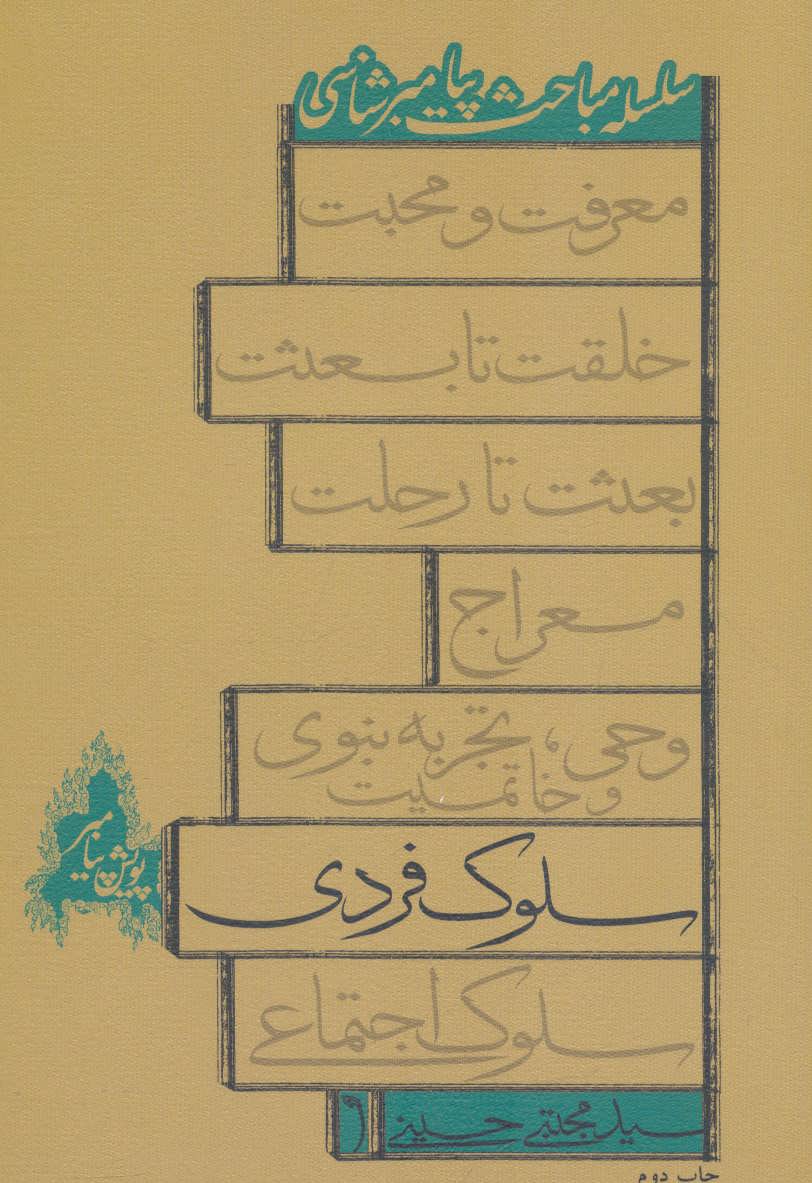 سلسله مباحث پیامبرشناسی
معرفت و محبت
خلقت تا بعثت
بعثت تا رحلت
معراج
وحی، تجربه نبوی
و خاتمیت
پویش پیامبر
سلوک فردی
سلوک اجتماعی
سید مجتبی حسینی
۶
چاپ دوم